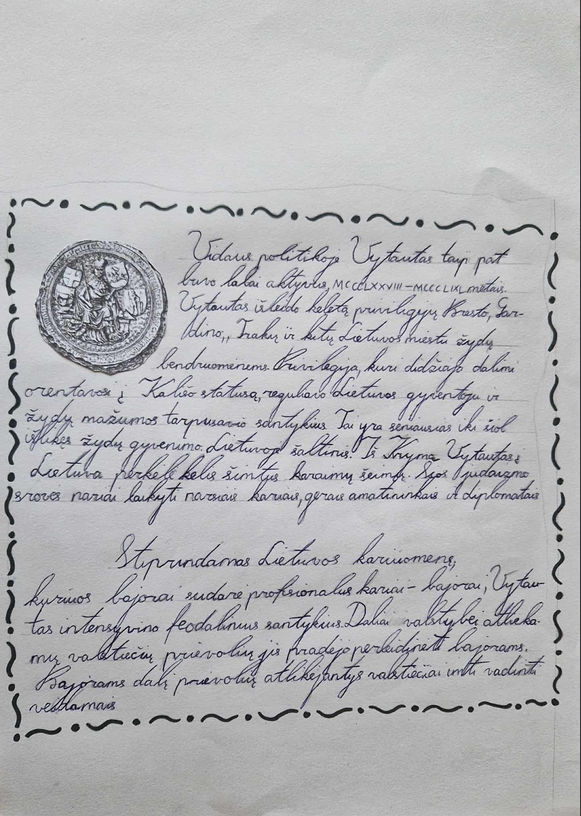 Vidaus politikoje Vytautas taip pat
buvo labai aktyvus, MCCCLXXXVIII-MCCCLIXL metais.
Vytautas išleido keletą privilegijų Bresto, Gar-
dino,, Trakų ir kitų Lietuvos miestų žydų
bendruomenėms. Privilegija, kuri didžiąja dalimi
orentavosi į Kališo statusą, reguliavo Lietuvos gyventojų ir
žydų mažumos tarpusavio santykius Tai yra seniausias iki šiol
išlikęs žydų gyvenimo Lietuvoje šaltinis. Iš Krymo Vytautas į
Lietuvą perkėlė kelis šimtus karaimų šeimų. Šios judaizmo
srovės nariai laikyti narsiais kariais, gerais amatininkais ir diplomatais
Stiprindamas Lietuvos kariuomenę,
kurios bajorai sudarė profesionalūs kariai - bajorai, Vytau-
tas intensyvino feodalinius santykius. Daliai valstybei atlieka-
mų valstiečių prievolių jis pradėjo perleidinėti bajorams.
Bajorams dalį prievolių atlikėjantys valstiečiai imti vadinti
veldamais